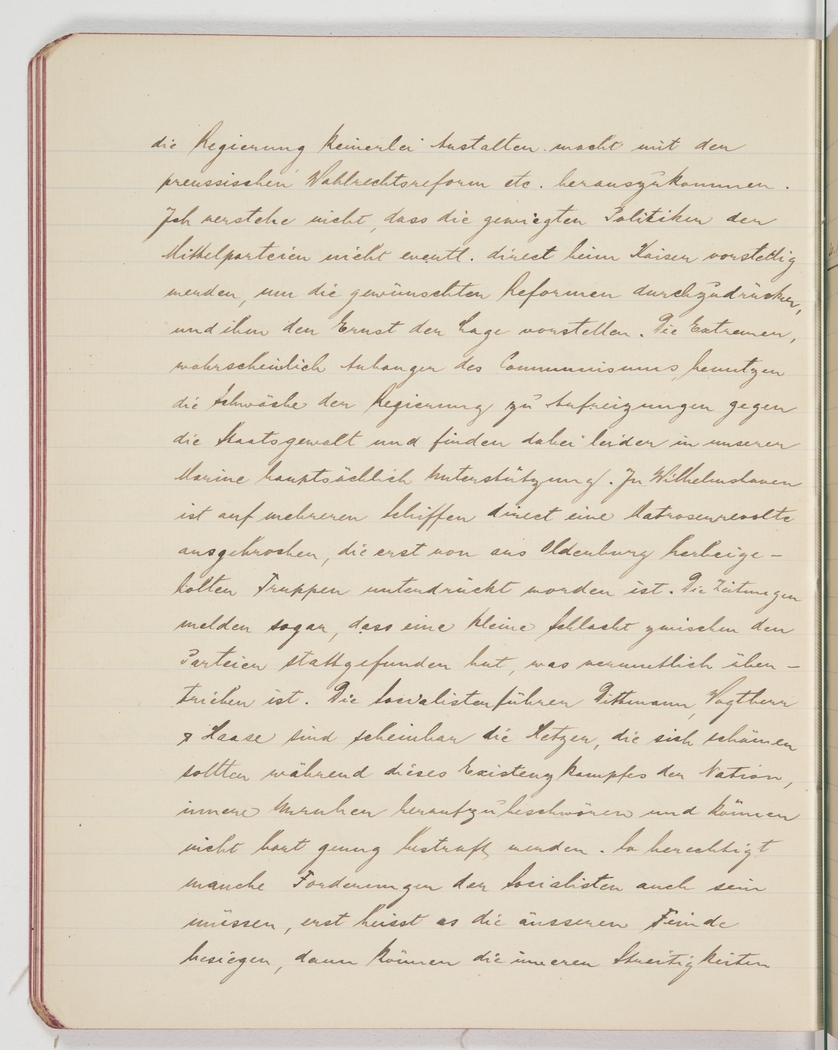 die Regierung keinerlei Anstalten macht mit der
preussischen Wahlrechtsreform etc. herauszukommen.
Ich verstehe nicht, dass die gewiegten Politiker der
Mittelparteien nicht eventl. direct beim Kaiser vorstellig
werden, um die gewünschten Reformen durchzudrücken,
und ihm den Ernst der Lage vorstellen. Die Extremen,
wahrscheinlich Anhänger des Communismus, benutzen
die Schwäche der Regierung zu Aufreizungen gegen
die Staatsgewalt und finden dabei leider in unserer
Marine hauptsächlich Unterstützung. In Wilhelmshaven
ist auf mehreren Schiffen direct eine Matrosenrevolte
ausgebrochen, die erst von aus Oldenburg herbeige-
holten Truppen unterdrückt worden ist. Die Zeitungen
melden sogar, dass eine kleine Schlacht zwischen den
Parteien stattgefunden hat, was vermutlich über-
trieben ist. Die Socialistenführer Dittmann, Vogtherr
& Haase sind scheinbar die Hetzer, die sich schämen
sollten während dieses Existenzkampfes der Nation,
innere Unruhen heraufzubeschwören und können
nicht hart genug bestraft werden. So berechtigt
manche Forderungen der Socialisten auch sein
müssen, erst heisst es die äusseren Feinde
besiegen, dann können die inneren Streitigkeiten